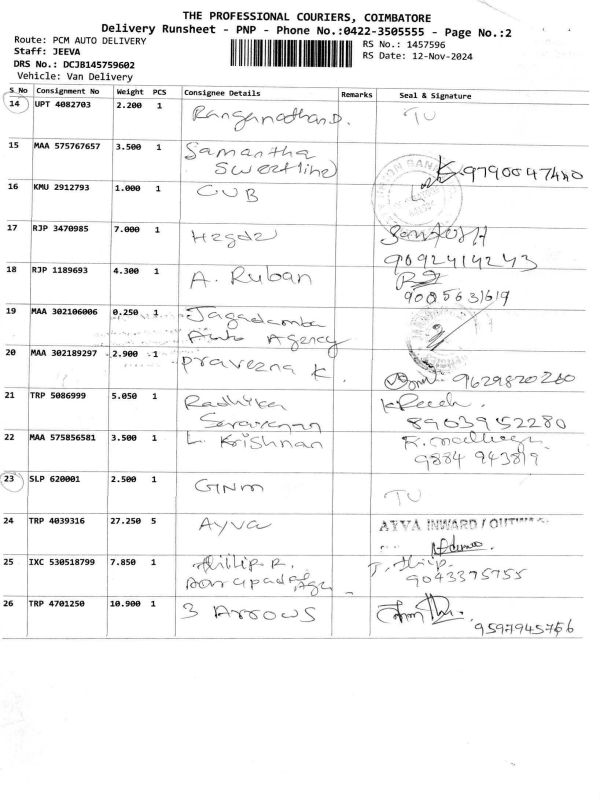 THE PROFESSIONAL COURIERS, COIMBATORE
Delivery Runsheet - PNP - Phone No.:0422-3505555 - Page No.:2
Route: PCM AUTO DELIVERY
Staff: JEEVA
DRS No.: DCJB145759602
Vehicle: Van Delivery
RS No.: 1457596
RS Date: 12-Nov-2024
S No Consignment No Weight PCS Consignee Details Remarks Seal & Signature
14 UPT 4082703 2.200 1 Ranganathan D. TU
15 MAA 575767657 3.500 1 Samantha
Sweetline 9790047440
16 KMU 2912793 1.000 1 CUB
17 RJP 3470985 7.000 1 Hegde Santosh
9092414243
18 RJP 1189693 4.300 1 A. Ruban
9005631619
19 MAA 302106006 0.250 1 Jagadamba
Auto Agency
20 MAA 302189297 2.900 1 Praveena K. 9629820260
21 TRP 5086999 5.050 1 Radhika
Saravanan 8903952280
22 MAA 575856581 3.500 1 L. Krishnan
9884 943819
23 SLP 620001 2.500 1 GNM TU
24 TRP 4039316 27.250 5 AYVA AYVA INWARD / OUTWA
25 IXC 530518799 7.850 1 Phillip R.
9043375755
26 TRP 4701250 10.900 1 3 Arrows
9597945766